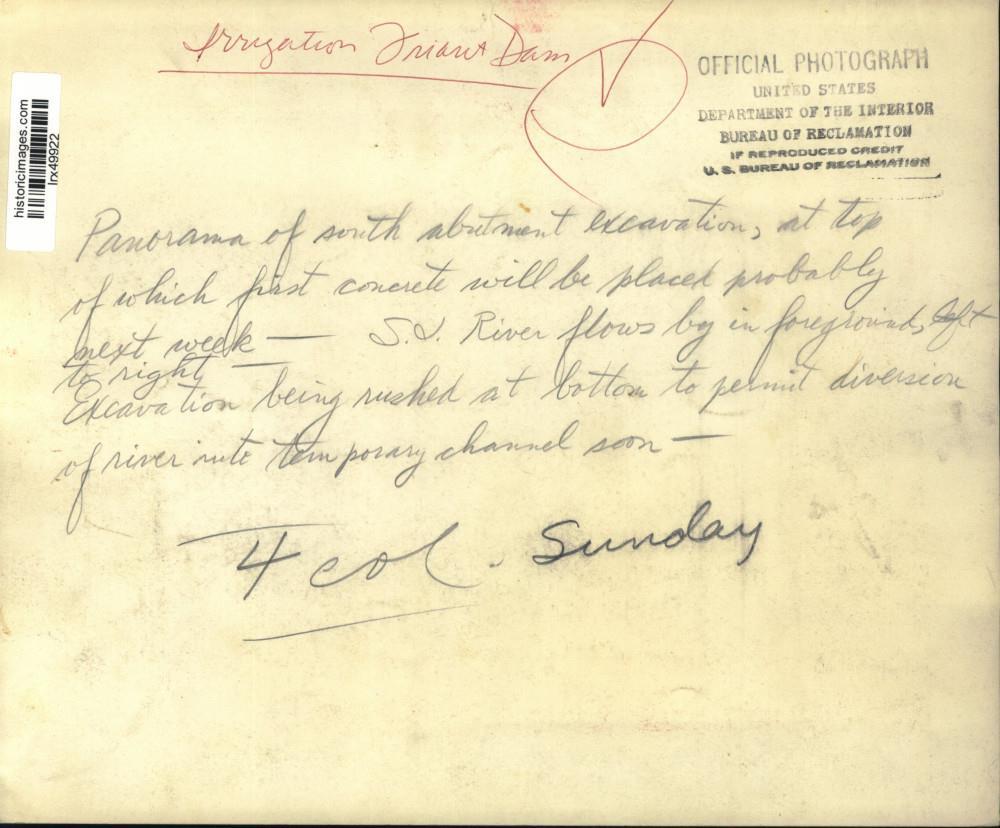 Irrigation Friant Dam
OFFICIAL PHOTOGRAPH
UNITED STATES
DEPARTMENT OF THE INTERIOR
BUREAU OF RECLAMATION
IF REPRODUCED CREDIT
U. S. BUREAU OF RECLAMATION
historicimages.com
lrx49922
Panorama of south abutment excavation, at top
of which first concrete will be placed probably
next week — S.J. River flows by in foreground, left
to right —
Excavation being rushed at bottom to permit diversion
of river into temporary channel soon —
4 col. Sunday